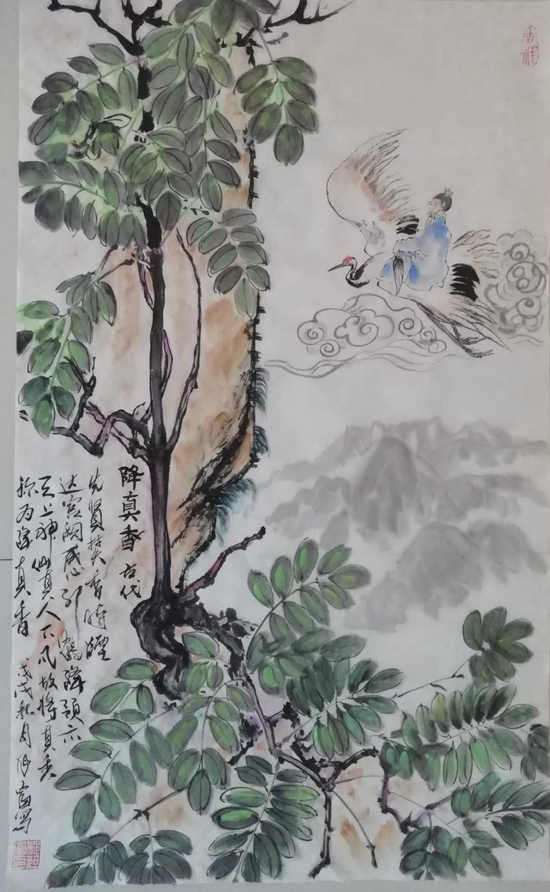 降真香 古代
先贤焚香时烟
达宫阙感引鹤降预示
天上神仙真人下凡故将其美
称为降真香
戊戌秋月 写